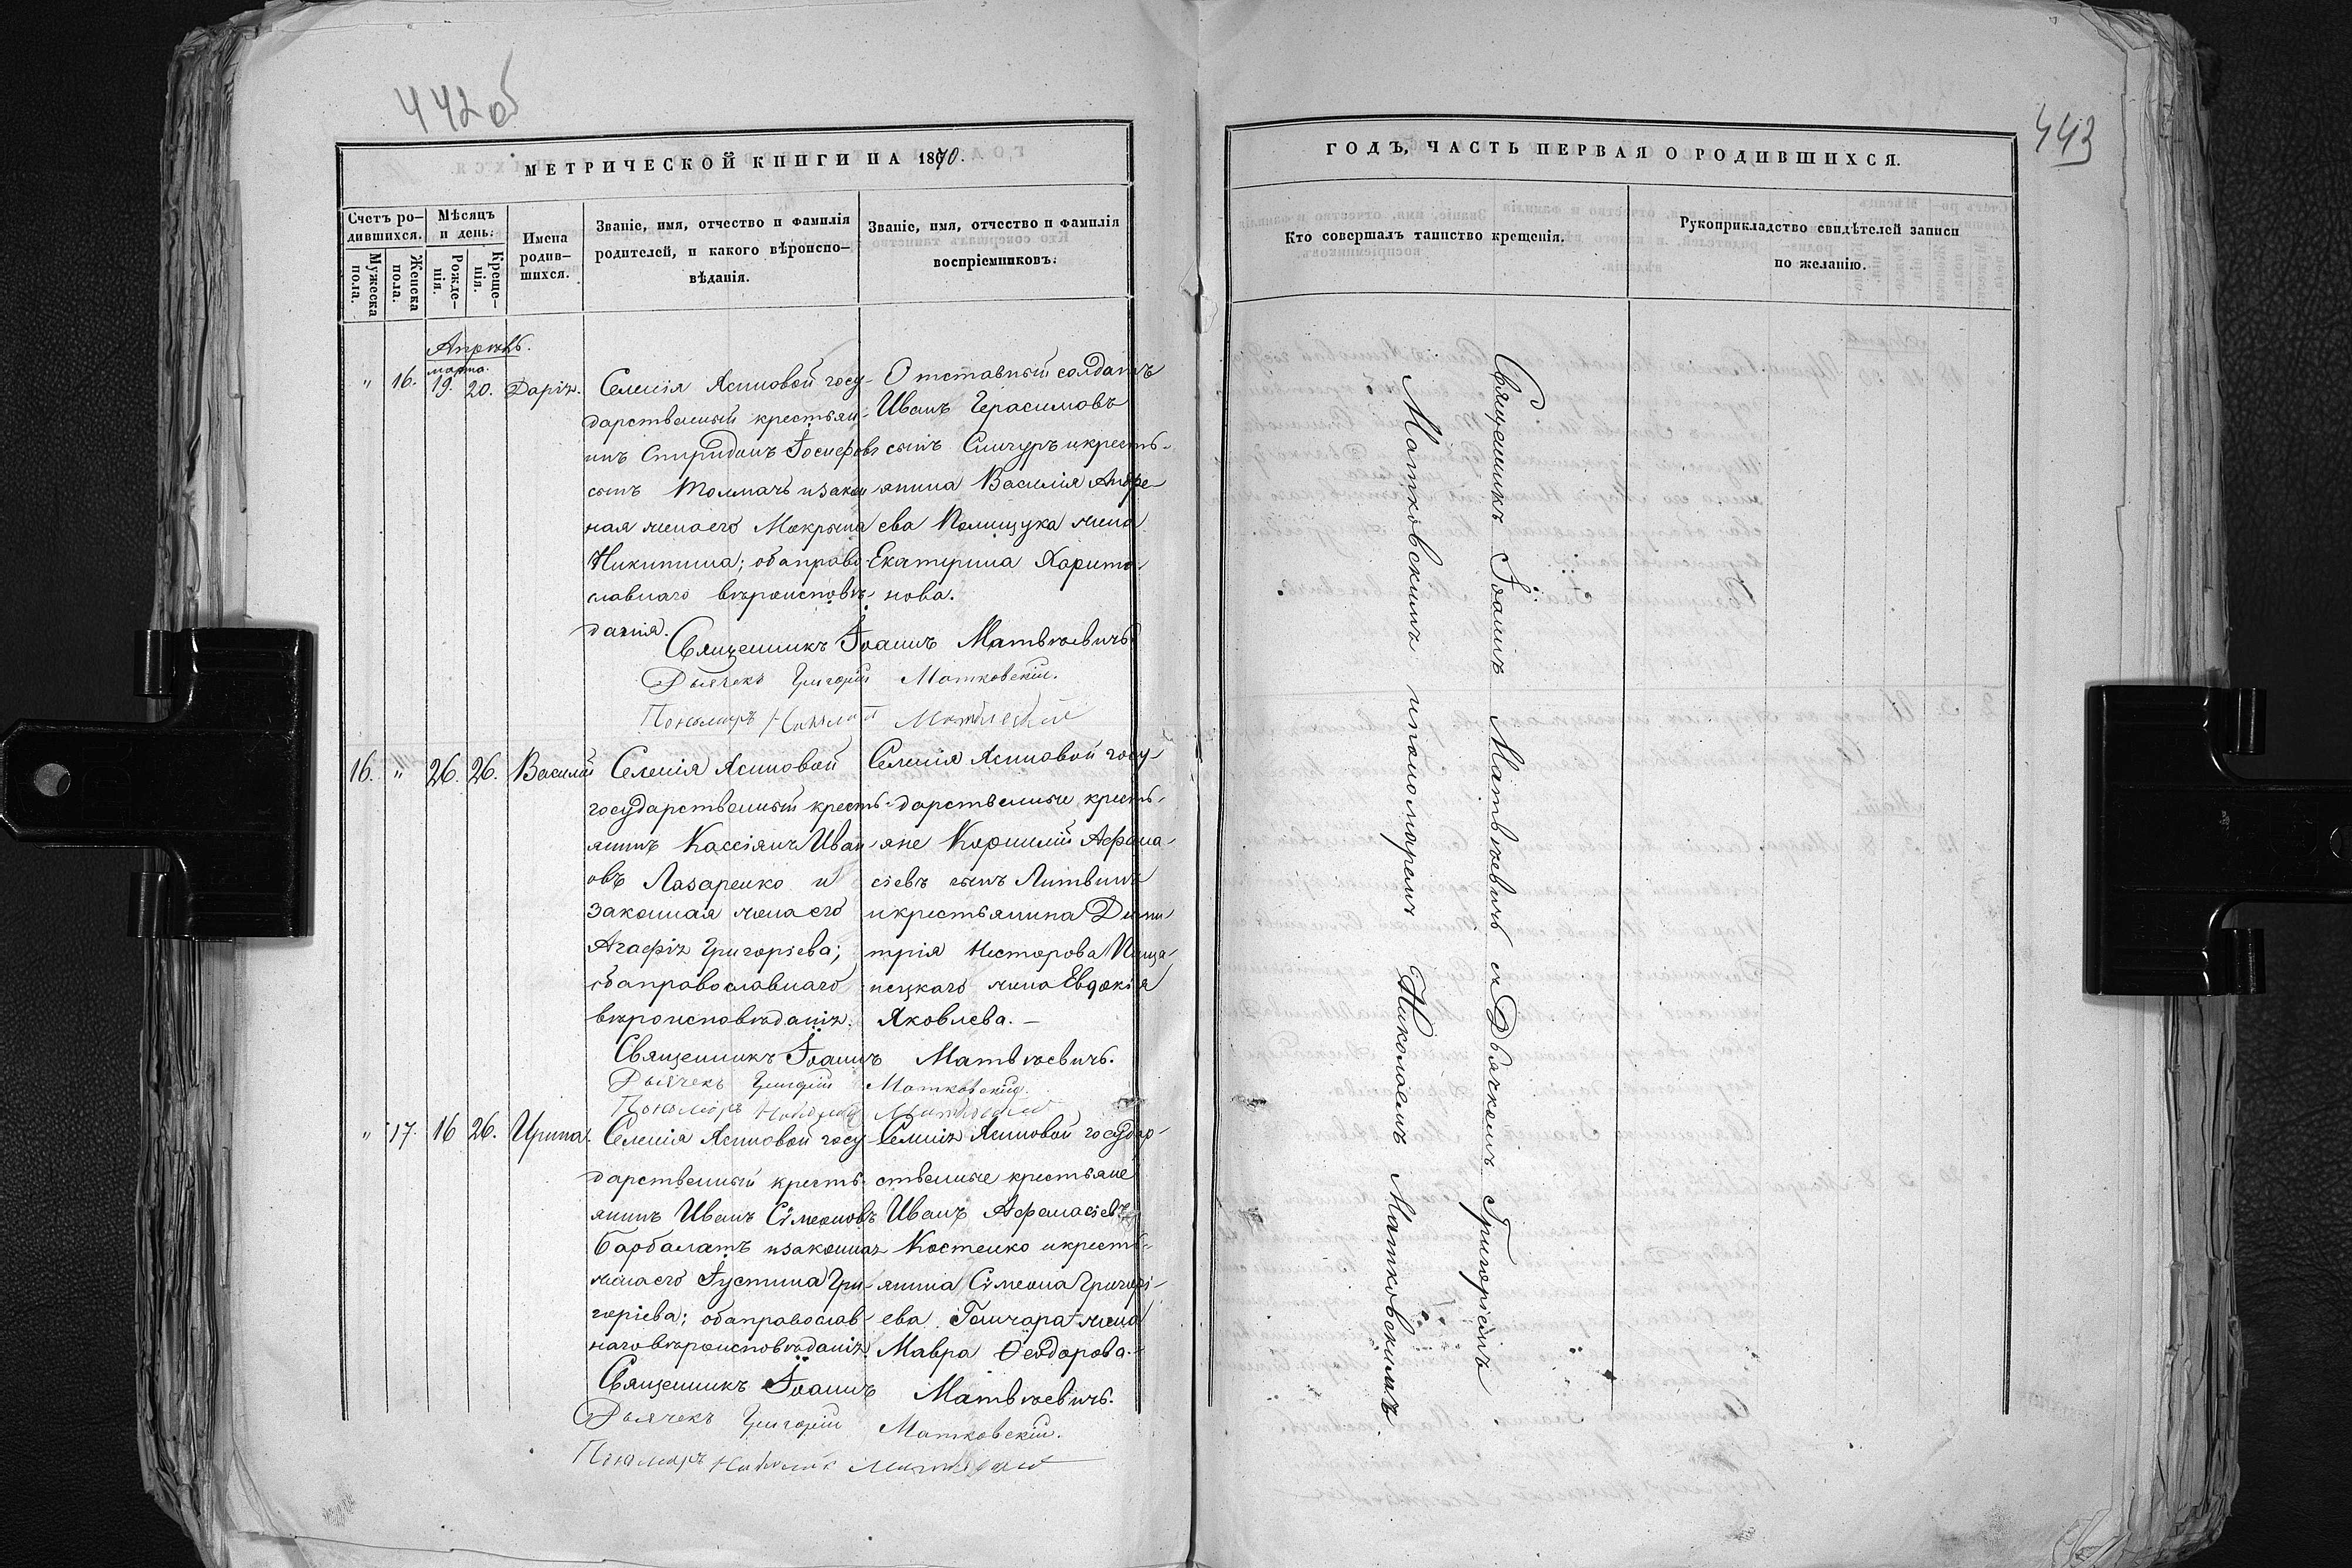 442об
МЕТРИЧЕСКОЙ КНИГИ НА 1870.
Счетъ ро-
дившихся.
Мѣсяцъ
и день:
Мужеска
пола.
Женска
пола.
Рожде-
нія.
Креще-
нія.
Имена
родив-
шихся.
Званіе, имя, отчество и фамилія
родителей, и какого вѣроиспо-
вѣданія.
Званіе, имя, отчество и фамилія
воспріемниковъ:
Апрель.
марта.
" 16. 19. 20. Дарія.
Селенія Ясиновой госу-
дарственный крестьян-
инъ Спиридонъ Іосифовъ
сынъ Толмачъ и закон
ная жена его Макрина
Никитина; оба право
славнаго вѣроисповѣ-
данія.
Отставный солдатъ
Иванъ Герасимовъ
сынъ Снигуръ и кресть-
янина Василія Андре
ева Полищука жена
Екатерина Харито-
нова.
Священникъ Іоаннъ Матвѣевичъ
Дьячекъ Григорій Матковскій.
Пономарь Николай Матковскій
16. " 26. 26. Василій
Селенія Ясиновой
государственный кресть-
янинъ Кассіянъ Иван-
овъ Лазаренко и
законная жена его
Агафія Григоріева;
оба православнаго
вѣроисповѣданія.
Селенія Ясиновой госу-
дарственные кресть-
яне Корнилій Афана-
сіевъ сынъ Литвинъ
и крестьянина Дими-
трія Несторова
жена Евдокія
Яковлева. —
Священникъ Іоаннъ Матвѣевичъ.
Дьячекъ Григорій Матковскій.
Пономарь Николай Матковскій
" 17. 16 26. Ирина.
Селенія Ясиновой госу-
дарственный кресть-
янинъ Иванъ Сімеоновъ
Барбалатъ и законная
жена его Іустина Гри-
горіева; оба православ-
наго вѣроисповѣданія.
Селенія Ясиновой государ-
ственные крестьяне
Иванъ Афанасіевъ
Костенко и кресть-
янина Сімеона Григорі-
ева Гончара жена
Мавра Ѳеодорова.
Священникъ Іоаннъ Матвѣевичъ.
Дьячекъ Григорій Матковскій.
Пономарь Николай Матковскій
443
ГОДЪ, ЧАСТЬ ПЕРВАЯ О РОДИВШИХСЯ.
Кто совершалъ таинство крещенія.
Рукоприкладство свидѣтелей записи
по желанію.
Священникъ Іоаннъ Матвѣевичъ съ Дьячкомъ Григоріемъ
Матковскимъ и пономаремъ Николаемъ Матковскимъ.